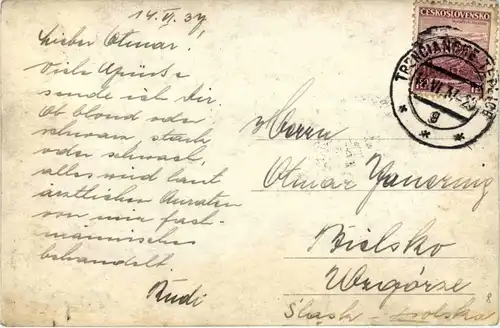 14.VI.37
Lieber Otmar!
Viele Grüsse
sende ich Dir.
Ob blond oder
schwarz, stark
oder schwach,
alles wird laut
ärztlichen
von mir fach-
männisches
behandelt.
Rudi
ČESKOSLOVENSKO
TRENČIANSKE TEPLICE
VI.37
g
Herrn
Otmar
Bielsko
Wzgórze
Śląsk - Polska